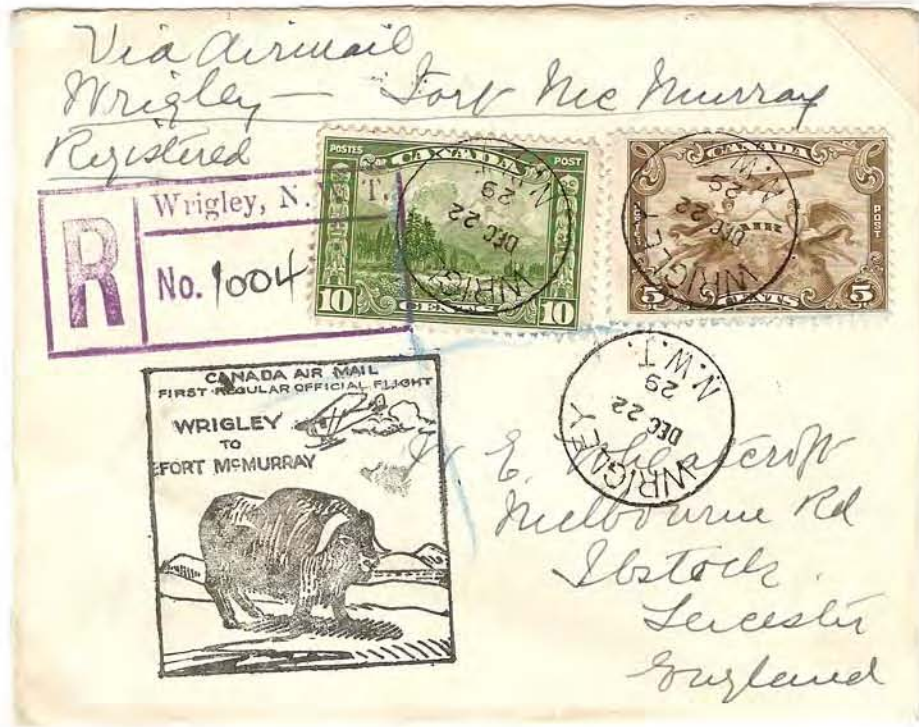 Via Airmail
Wrigley — Fort Mc Murray
Registered
R
Wrigley, N. W. T.
No. 1004
POSTES CANADA POST
10 CENTS 10
CANADA
POSTES AIR POST
5 CENTS 5
WRIGLEY
DEC 22
29
N.W.T.
WRIGLEY
DEC 22
29
N.W.T.
WRIGLEY
DEC 22
29
N.W.T.
CANADA AIR MAIL
FIRST REGULAR OFFICIAL FLIGHT
WRIGLEY
TO
FORT McMURRAY
W E Wheatcroft
Melbourne Rd
Ibstock
Leicester
England